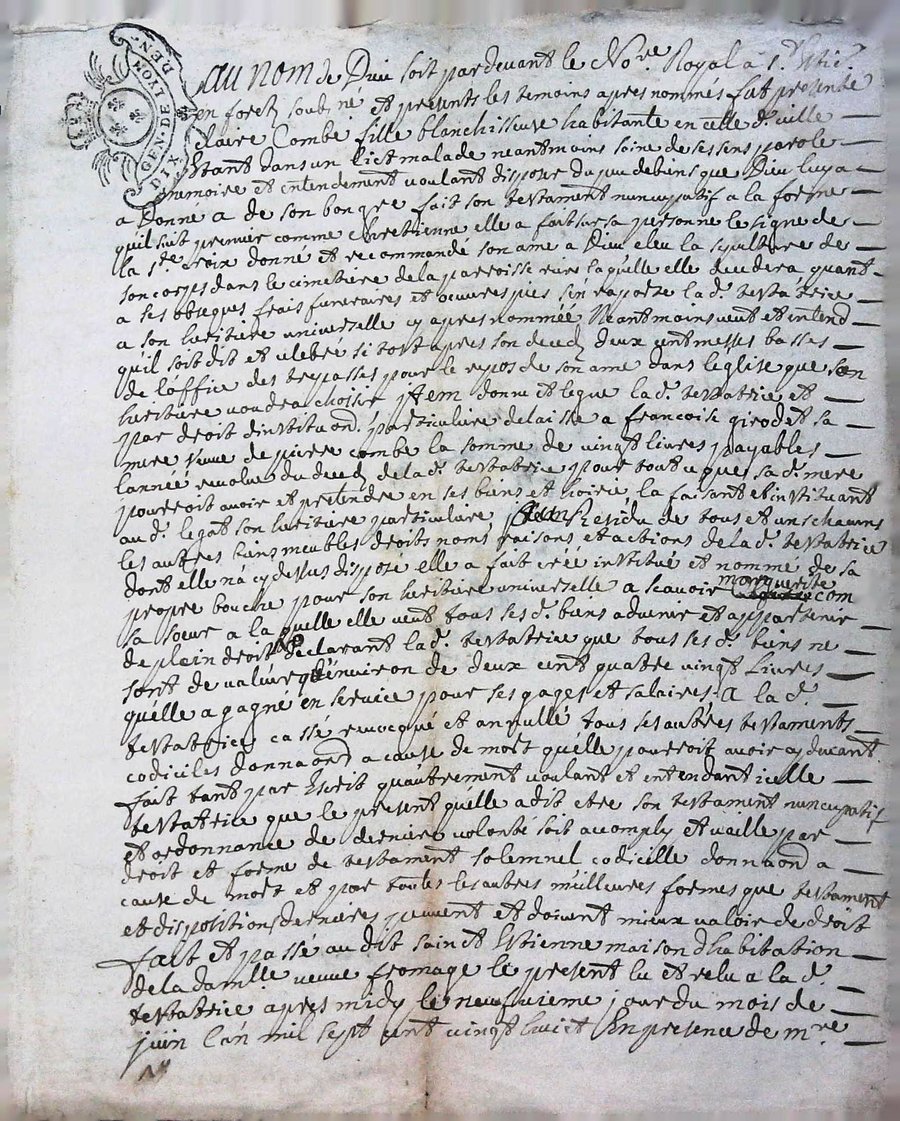 GEN. DE LYON
DIX DEN.rs
Au nom de Dieu soit par devant le No.re Royal à S.t Estie.
en forest sous né et presents les temoins apres nommés fut presente
Claire Combe fille blanchisseuse habitante en cette d. ville
Estant dans un lict malade neantmoins saine de ses sens parole
memoire et entendement voulant disposer du peu de biens que Dieu luy a
a Donné a de son bon gre fait son testament nuncupatif a la forme
quil suit premier comme Chretienne elle a fait sur sa personne le signe de
la s.te Croix donné et recommandé son ame a Dieu eleu la sepulture de
son corps dans le cimetiere de la parroisse riere laquelle elle decedera quant
a ses obseques frais funeraires et oeuvres pies s'en raporte la d. testatrice
a son heritiere universelle cy apres nommée Neantmoins veut et entend
qu'il soit dit et celebré si tost apres son deced deux cent messes basses
de l'office des trepassés pour le repos de son ame dans leglise que son
heritiere voudra choisir jtem donne et legue la d. testatrice et
par droit d'instituon. particuliere delaisse a francoise girodet sa
mere veuve de pierre combe la somme de vingt livres payables
l'année revolue du deced de la d. testatrice pour tout ce que sa d. mere
pourroit avoir et pretendre en ses biens et hoirie la faisant et instituant
au d. legat son heritiere particuliere Residu de tous et uns chacuns
les autres biens meubles droits noms raisons et actions de la d. testatrice
dont elle n'a cy dessus disposé elle a fait créé institué et nommé de sa
propre bouche pour son heritiere universelle a scavoir marguerite com
sa soeur a la quelle elle veut tous ses d. biens advenir et appartenir
de plein droit Declarant la d. testatrice que tous ses d. biens ne
sont de valeur qu'environ de deux cent quatre vingt Livres
qu'elle a gagné en service pour ses gages et salaires. A la d.
testatrice cassé revocqué et annullé tous ses autres testaments
codiciles donnaond a cause de mort qu'elle pourroit avoir cy devant
fait tant par Escrit qu'autrement voulant et entendant icelle
testatrice que le present qu'elle a dit etre son testament nuncupatif
et ordonnance de derniere volonté soit accomply et vaille par
droit et forme de testament solemnel codicille donnaond a
cause de mort et par toutes les autres meilleures formes que testament
et dispositions dernieres peuvent et doivent mieux valoir de droit
fait et passé au dit sainct Estienne maison d'habitation
de la dam.lle veuve fromage le present lu et relu a la d.
testatrice apres midy le neufvieme jour du mois de
juin l'an mil sept cent vingt huict En presence de m.re